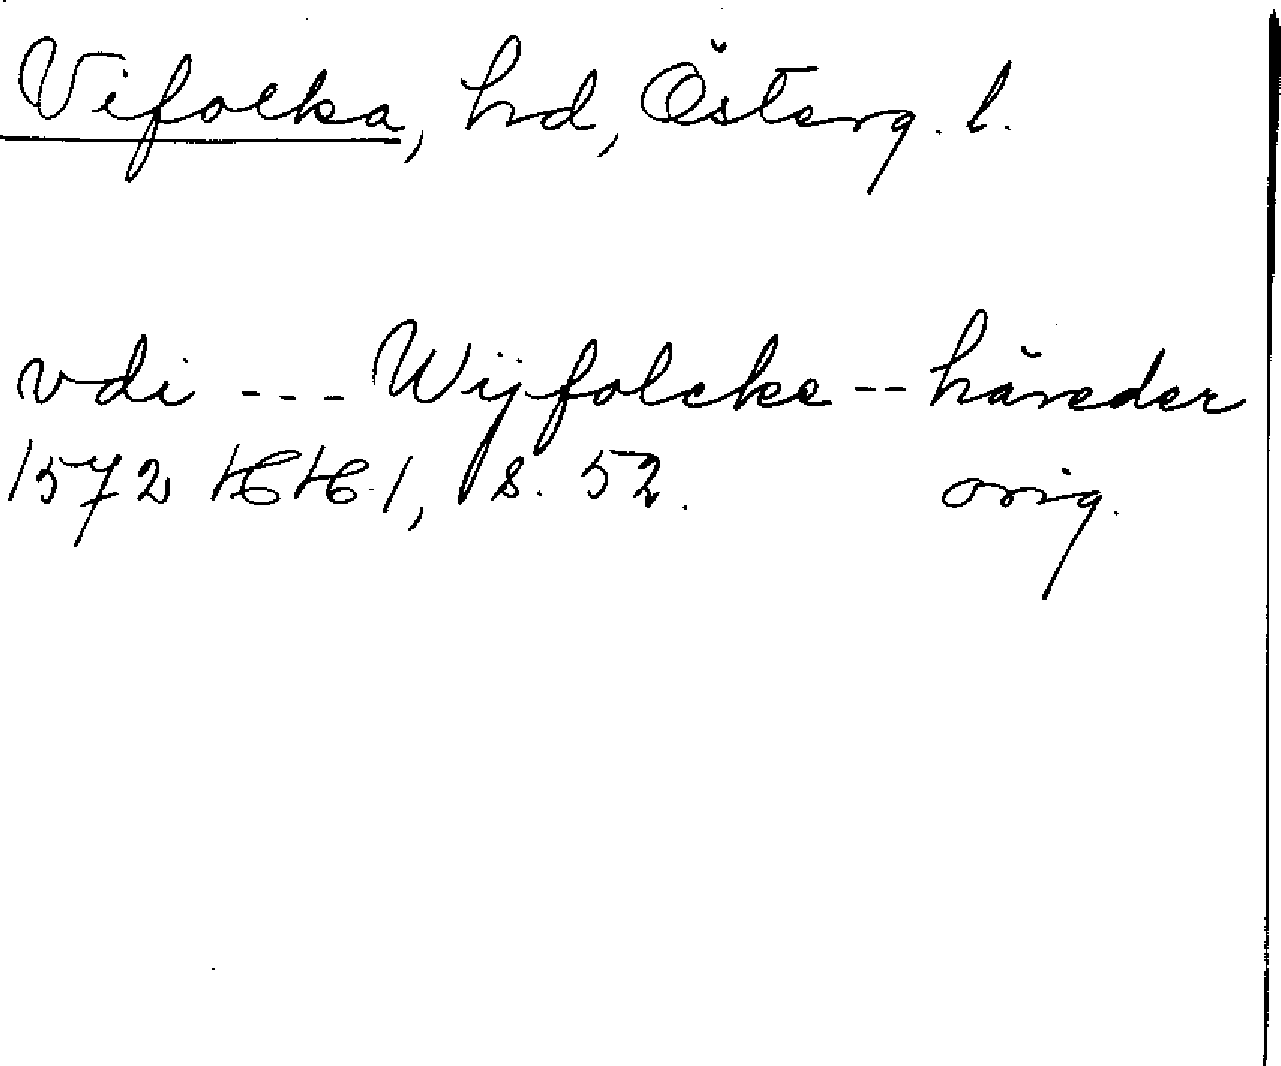 Vifolka, hd, Österg. l.
vdi --- Wijfolcke -- häreder
1572 HH 1, s. 52. orig.